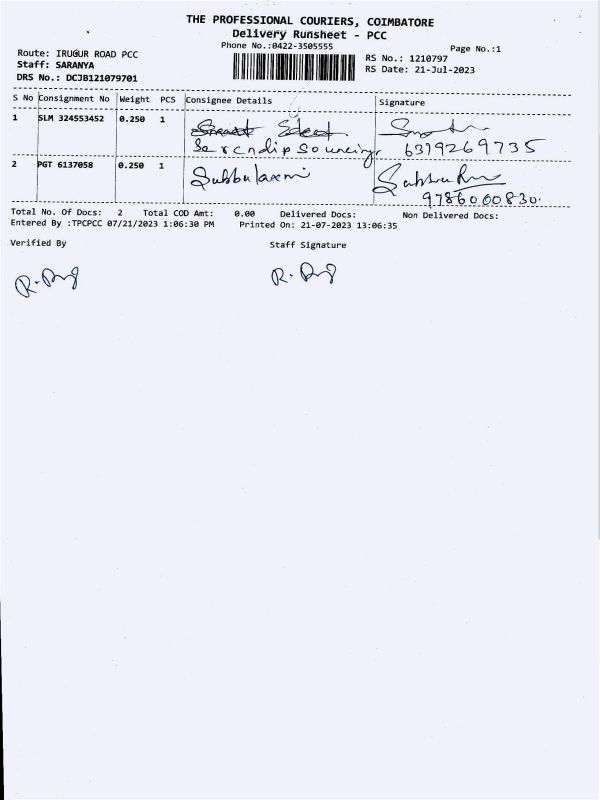 THE PROFESSIONAL COURIERS, COIMBATORE
Delivery Runsheet - PCC
Phone No.:0422-3505555
Page No.:1
Route: IRUGUR ROAD PCC
Staff: SARANYA
DRS No.: DCJB121079701
RS No.: 1210797
RS Date: 21-Jul-2023
S No Consignment No Weight PCS Consignee Details Signature
1 SLM 324553452 0.250 1
Serendip Sourcing 6379269735
2 PGT 6137058 0.250 1 Subbulaxmi
9786000830.
Total No. Of Docs: 2 Total COD Amt: 0.00 Delivered Docs: Non Delivered Docs:
Entered By :TPCPCC 07/21/2023 1:06:30 PM Printed On: 21-07-2023 13:06:35
Verified By Staff Signature